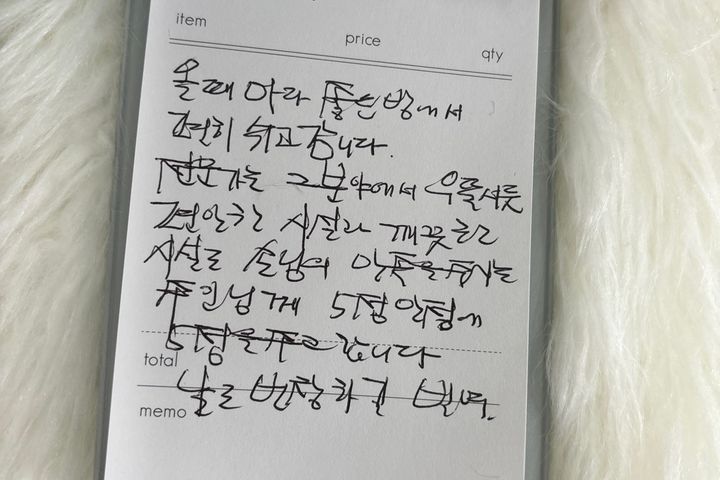 item
price
qty
올때 마다 좋은 방에서
편히 쉬고 갑니다.
전문가는 그분야에서 우뚝서듯
편안한 시설과 깨끗한
시설로 손님의 만족을 주시는
주인님께 5점 만점에
5점을 주고 갑니다
total
날로 번창하길 빌며.
memo